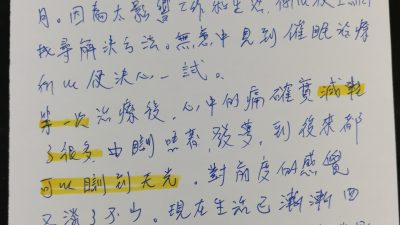 月。因為太影響工作和生活，所以便上網
找尋解決方法。無意中見到催眠治療
所以便決心一試。
第一次治療後，心中的痛確實減輕
了很多，由瞓唔著，發夢，到後來都
可以瞓到天光。對前度的感覺
又淡了不少。現在生活已漸漸回